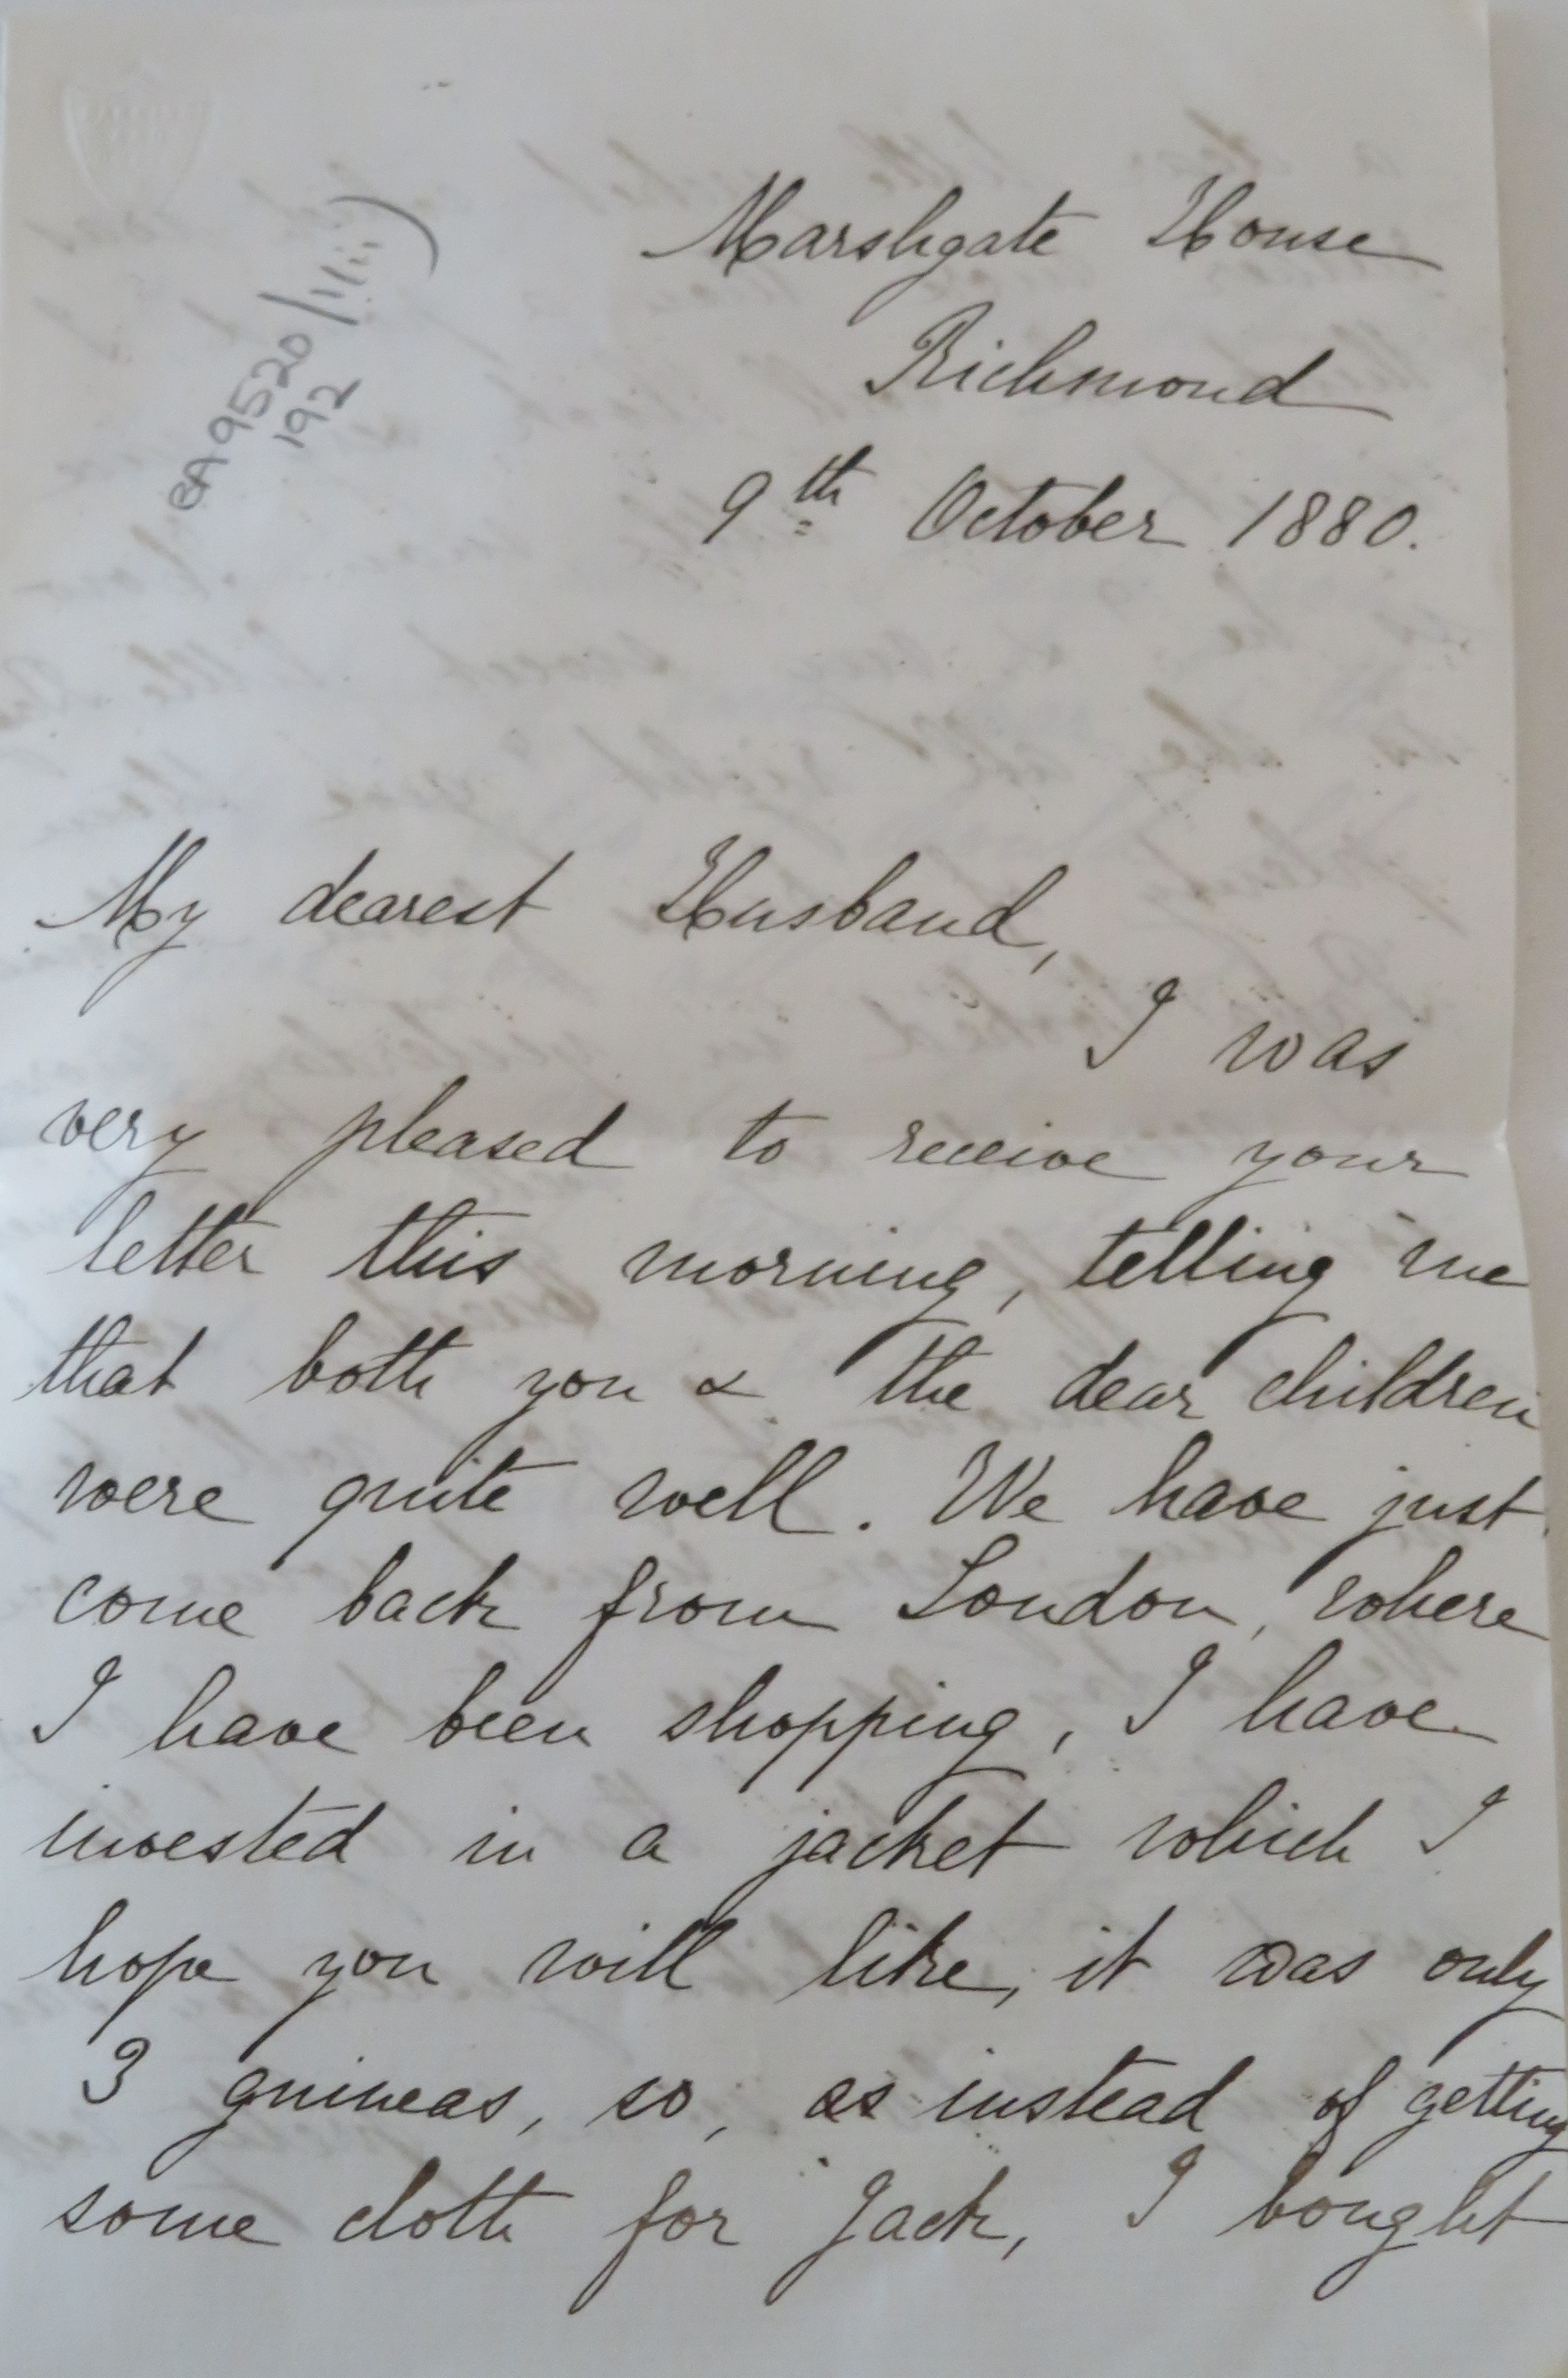 BA9520/1(ii)
192
Marshgate House
Richmond
9th October 1880.
My dearest Husband,
I was
very pleased to receive your
letter this morning, telling me
that both you & the dear children
were quite well. We have just
come back from London, where
I have been shopping, I have
invested in a jacket which I
hope you will like, it was only
3 guineas, so, as instead of getting
some cloth for Jack, I bought